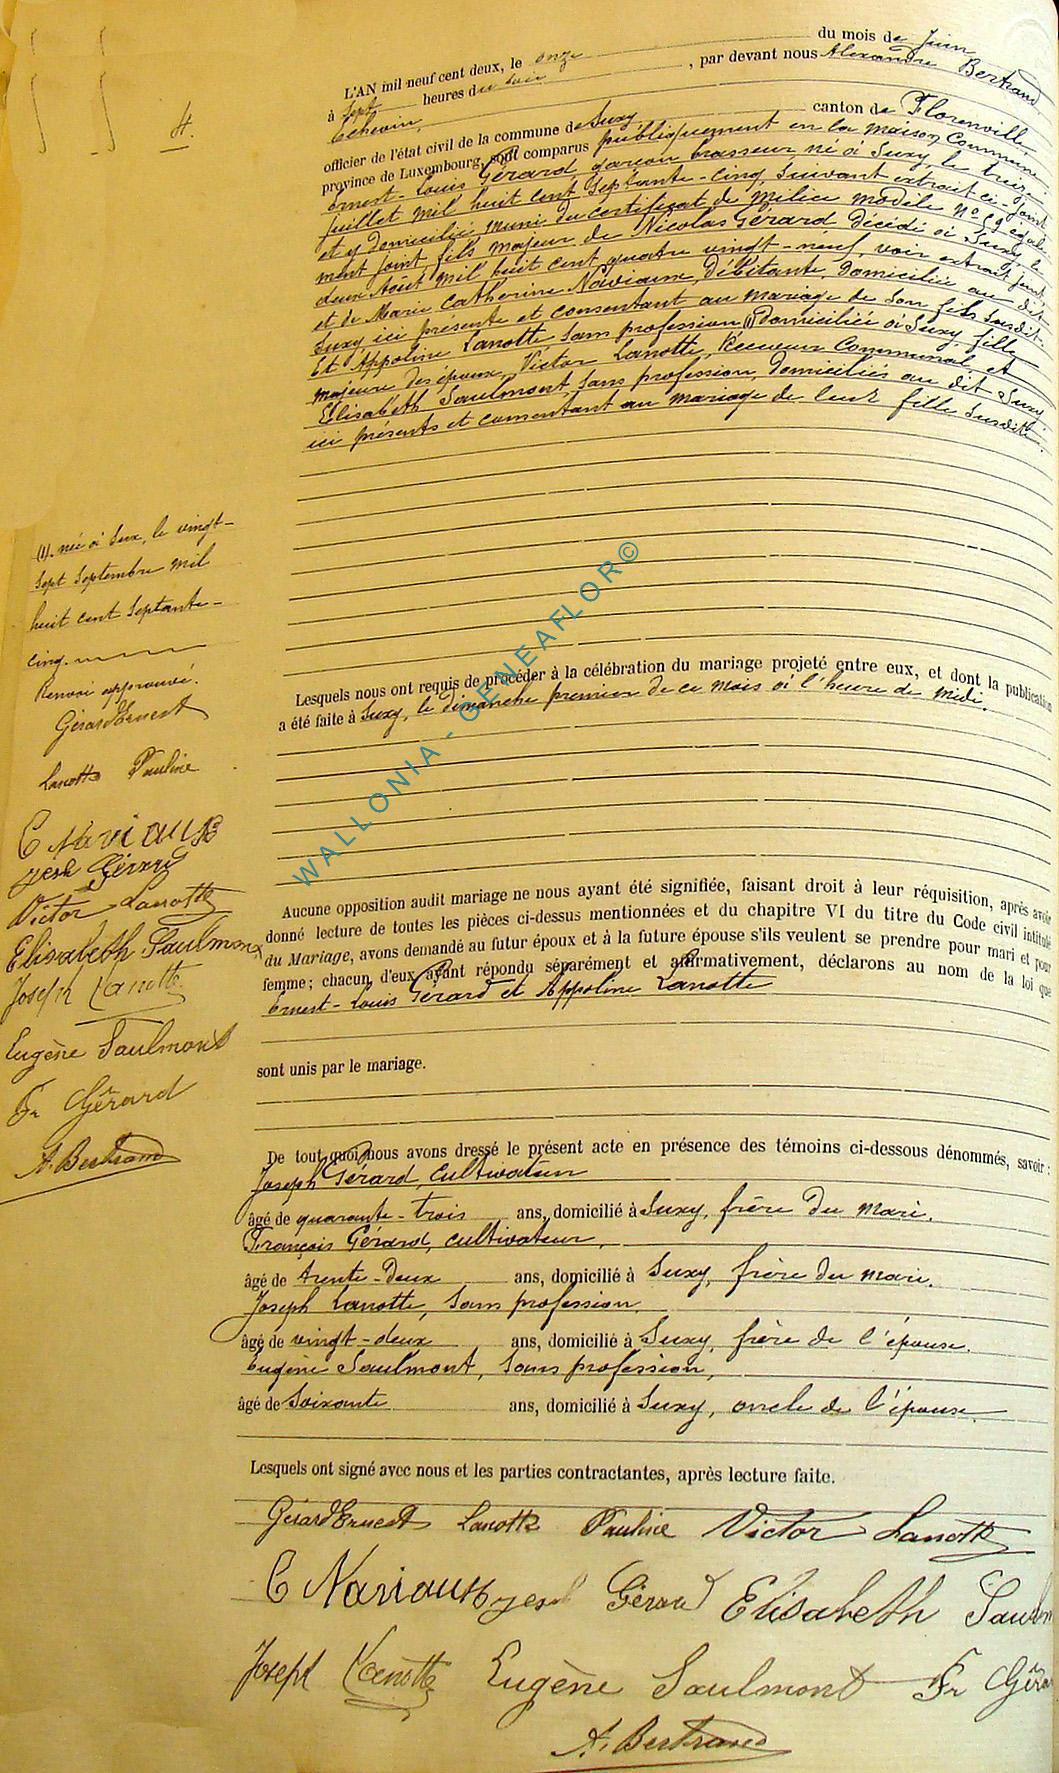 4.
L'AN mil neuf cent deux, le onze du mois de Juin
à Sept heures du soir, par devant nous Alexandre Bertrand
Echevin,
officier de l'état civil de la commune de Suxy canton de Florenville,
province de Luxembourg, sont comparus publiquement en la maison Commune
Ernest-Louis Gérard, garçon brasseur né à Suxy, le treize
Juillet mil huit cent septante-cinq suivant extrait ci-joint
et y domicilié, muni du certificat de milice modèle N° 59 égale-
ment joint, fils majeur de Nicolas Gérard décédé à Suxy, le
deux Août mil huit cent quatre vingt-neuf, voir extrait joint,
et de Marie Catherine Naviaux, Débitante, domiciliée au dit
Suxy ici présente et consentant au mariage de son fils susdit.
Et Appoline Lanotte sans profession (1) domiciliée à Suxy, fille
majeure des époux, Victor Lanotte, Receveur Communal, et
Elisabeth Saulmont, sans profession, domiciliés au dit Suxy
ici présents et consentant au mariage de leur fille susdite.
(1). née à Suxy, le vingt-
sept Septembre mil
huit cent Septante-
cinq.
Renvoi approuvé.
Gérard Ernest
Lanotte Pauline
C Naviaux
Gérard
Victor Lanotte
Elisabeth Saulmont
Joseph Lanotte
Eugène Saulmont
Fr Gérard
A. Bertrand
Lesquels nous ont requis de procéder à la célébration du mariage projeté entre eux, et dont la publication
a été faite à Suxy, le dimanche premier de ce mois à l'heure de midi.
Aucune opposition audit mariage ne nous ayant été signifiée, faisant droit à leur réquisition, après avoir
donné lecture de toutes les pièces ci-dessus mentionnées et du chapitre VI du titre du Code civil intitulé
du Mariage, avons demandé au futur époux et à la future épouse s'ils veulent se prendre pour mari et pour
femme; chacun d'eux ayant répondu séparément et affirmativement, déclarons au nom de la loi que
Ernest-Louis Gérard et Appoline Lanotte
sont unis par le mariage.
De tout quoi nous avons dressé le présent acte en présence des témoins ci-dessous dénommés, savoir :
Joseph Gérard, Cultivateur
âgé de quarante-trois ans, domicilié à Suxy, frère du mari.
François Gérard, cultivateur,
âgé de trente-deux ans, domicilié à Suxy, frère du mari.
Joseph Lanotte, sans profession,
âgé de vingt-deux ans, domicilié à Suxy, frère de l'épouse.
Eugène Saulmont, sans profession,
âgé de soixante ans, domicilié à Suxy, oncle de l'épouse
Lesquels ont signé avec nous et les parties contractantes, après lecture faite.
Gérard Ernest Lanotte Pauline Victor Lanotte
C Naviaux Gérard Elisabeth Saulm
Joseph Lanotte Eugène Saulmont Fr Géra
A. Bertrand
WALLONIA - GENEAFLOR©